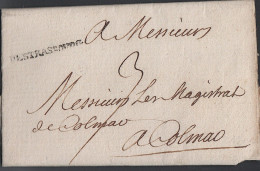 A Messieurs
D.STRASBOURG
3
Messieurs Les Magistrat
de Colmar
A Colmar